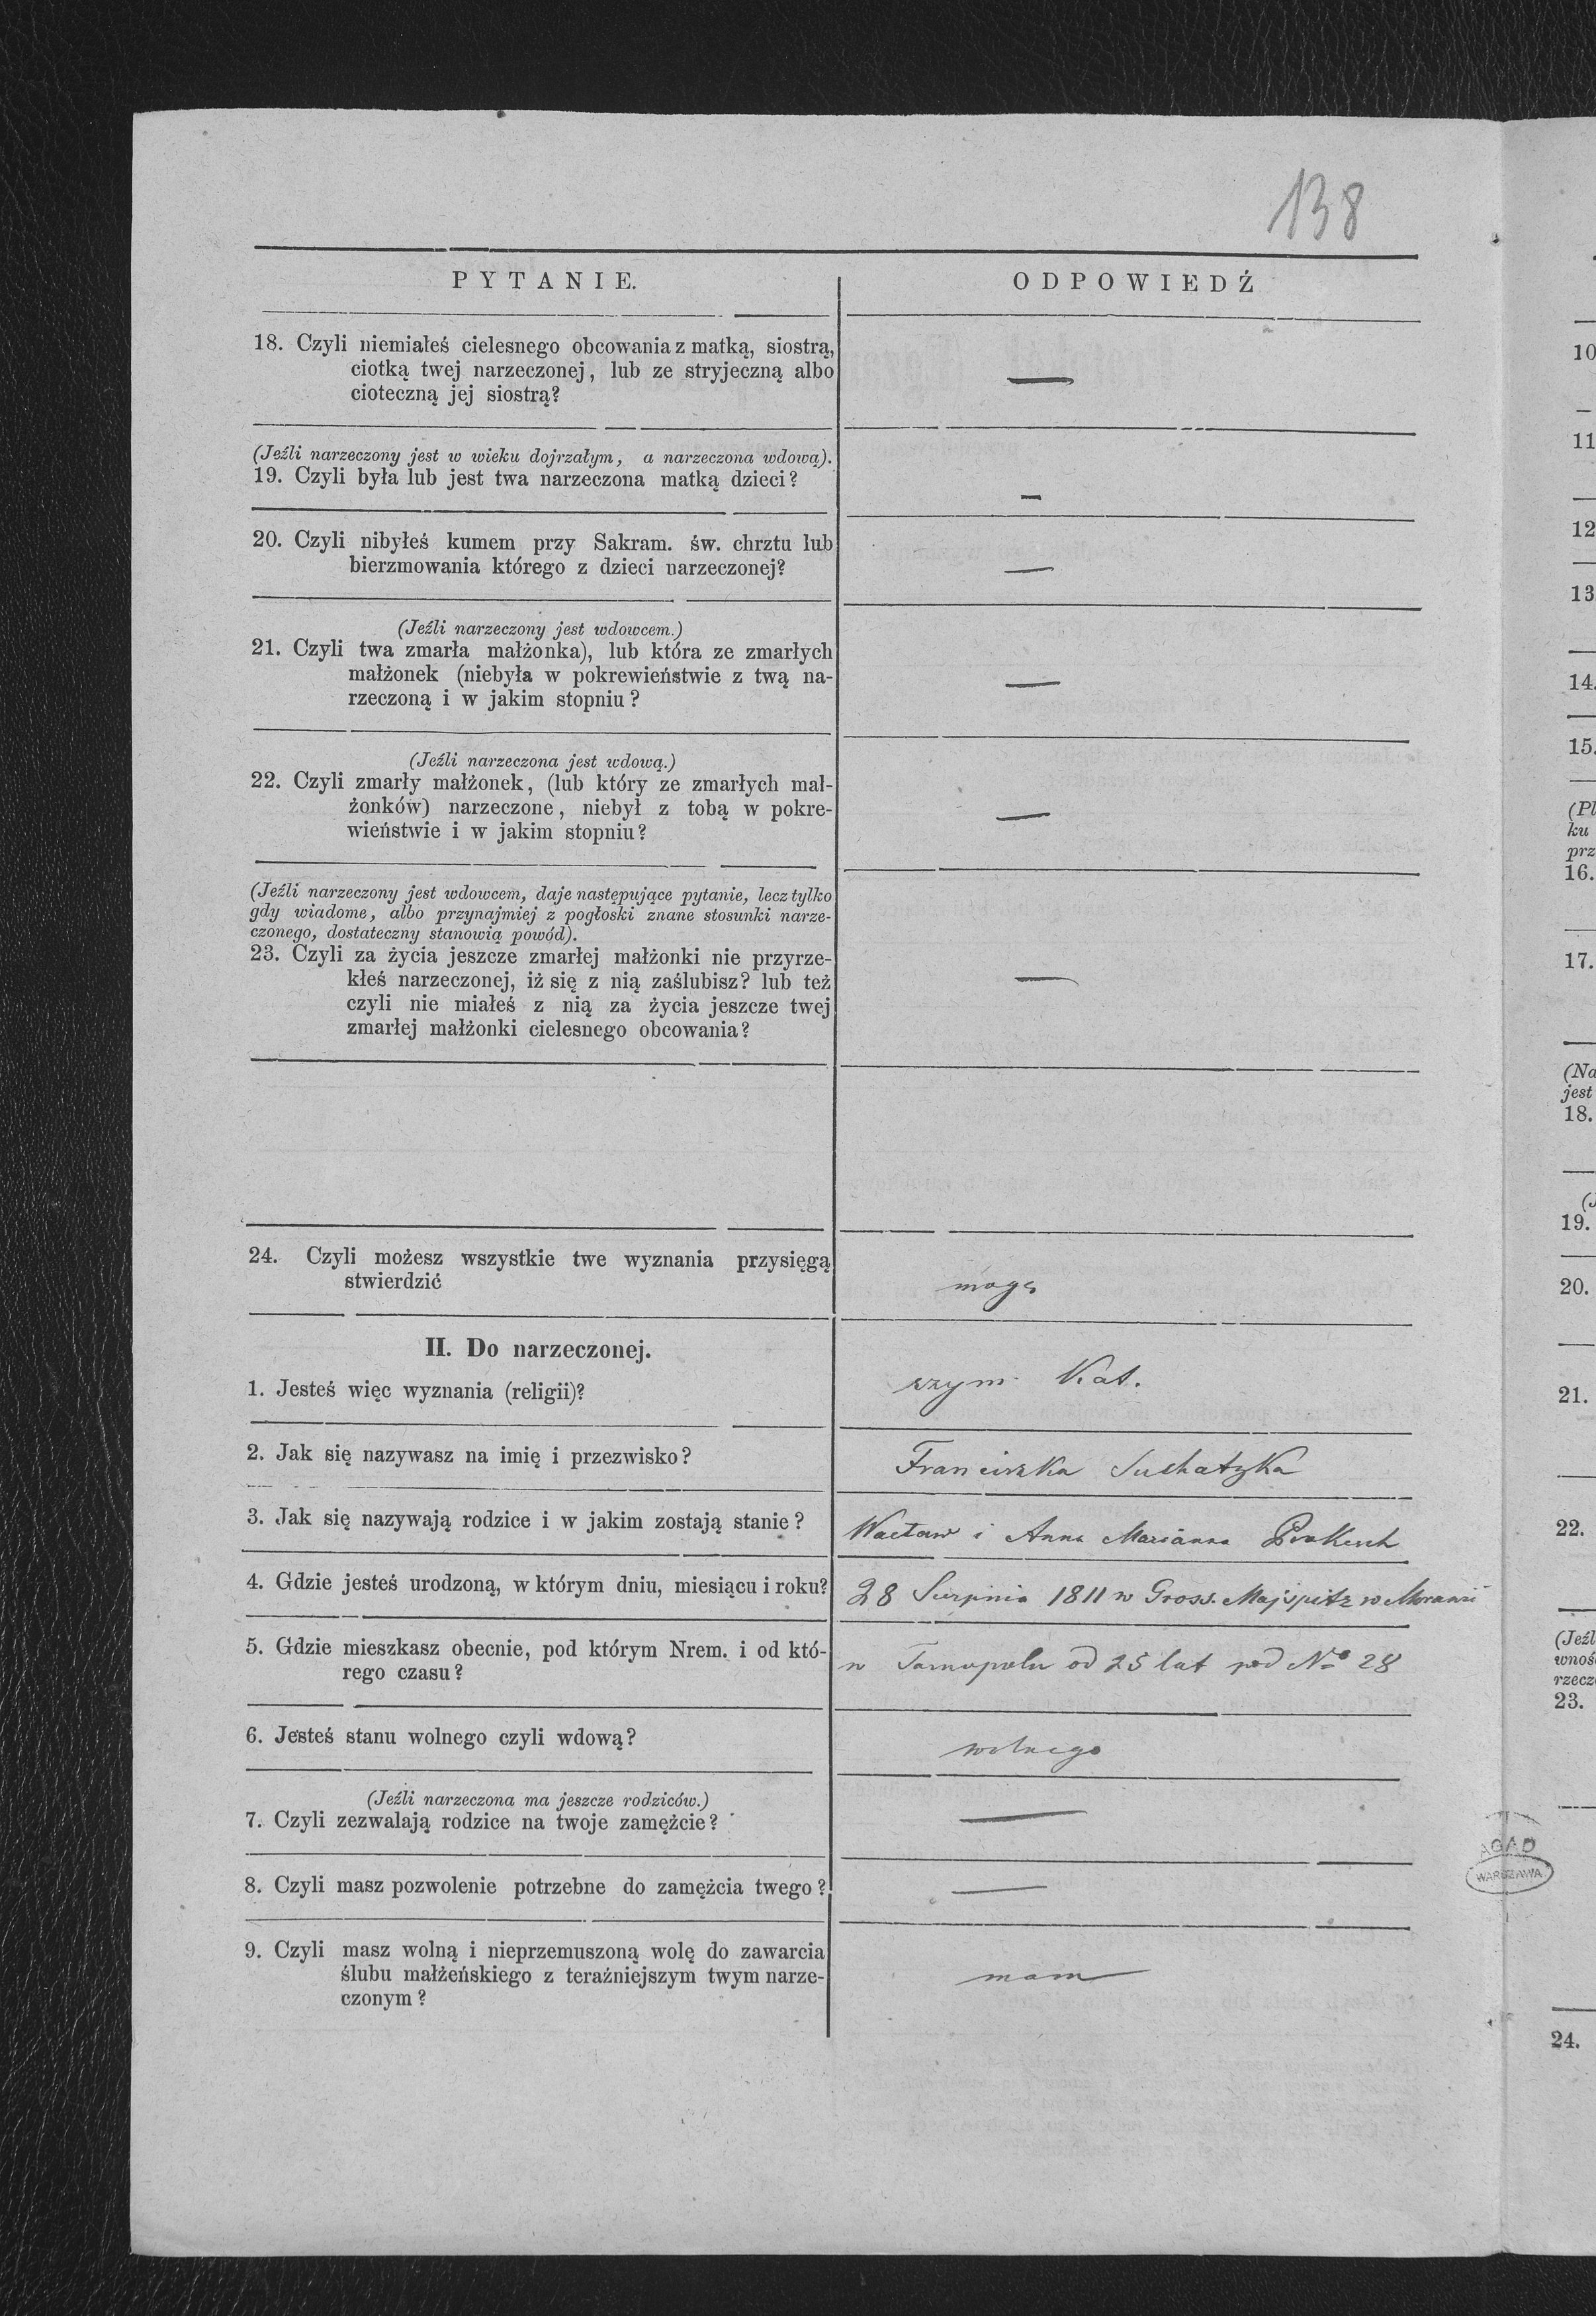 138
PYTANIE.
ODPOWIEDŹ
18. Czyli niemiałeś cielesnego obcowania z matką, siostrą,
ciotką twej narzeczonej, lub ze stryjeczną albo
cioteczną jej siostrą?
—
(Jeźli narzeczony jest w wieku dojrzałym, a narzeczona wdową).
19. Czyli była lub jest twa narzeczona matką dzieci?
—
20. Czyli nibyłeś kumem przy Sakram. św. chrztu lub
bierzmowania którego z dzieci narzeczonej?
—
(Jeźli narzeczony jest wdowcem.)
21. Czyli twa zmarła małżonka), lub która ze zmarłych
małżonek (niebyła w pokrewieństwie z twą na-
rzeczoną i w jakim stopniu?
—
(Jeźli narzeczona jest wdową.)
22. Czyli zmarły małżonek, (lub który ze zmarłych mał-
żonków) narzeczone, niebył z tobą w pokre-
wieństwie i w jakim stopniu?
—
(Jeźli narzeczony jest wdowcem, daje następujące pytanie, lecz tylko
gdy wiadome, albo przynajmiej z pogłoski znane stosunki narze-
czonego, dostateczny stanowią powód).
23. Czyli za życia jeszcze zmarłej małżonki nie przyrze-
kłeś narzeczonej, iż się z nią zaślubisz? lub też
czyli nie miałeś z nią za życia jeszcze twej
zmarłej małżonki cielesnego obcowania?
—
24. Czyli możesz wszystkie twe wyznania przysięgą
stwierdzić
mogę
II. Do narzeczonej.
1. Jesteś więc wyznania (religii)?
rzym. Kat.
2. Jak się nazywasz na imię i przezwisko?
Franciszka Suchatzka
3. Jak się nazywają rodzice i w jakim zostają stanie?
Wacław i Anna Marianna Prokesch
4. Gdzie jesteś urodzoną, w którym dniu, miesiącu i roku?
28 Sierpnia 1811 w Gross. Majspitz w Morawii
5. Gdzie mieszkasz obecnie, pod którym Nrem. i od któ-
rego czasu?
w Tarnopolu od 25 lat pod No 28
6. Jesteś stanu wolnego czyli wdową?
wolnego
(Jeźli narzeczona ma jeszcze rodziców.)
7. Czyli zezwalają rodzice na twoje zamężcie?
—
8. Czyli masz pozwolenie potrzebne do zamężcia twego?
—
9. Czyli masz wolną i nieprzemuszoną wolę do zawarcia
ślubu małżeńskiego z teraźniejszym twym narze-
czonym?
mam
AGAD
WARSZAWA
10
11
12
13
14.
15.
(Pl
ku
prz
16.
17.
(Na
jest
18.
(J
19.
20.
21.
22.
(Jeźl
wnoś
rzecz
23.
24.